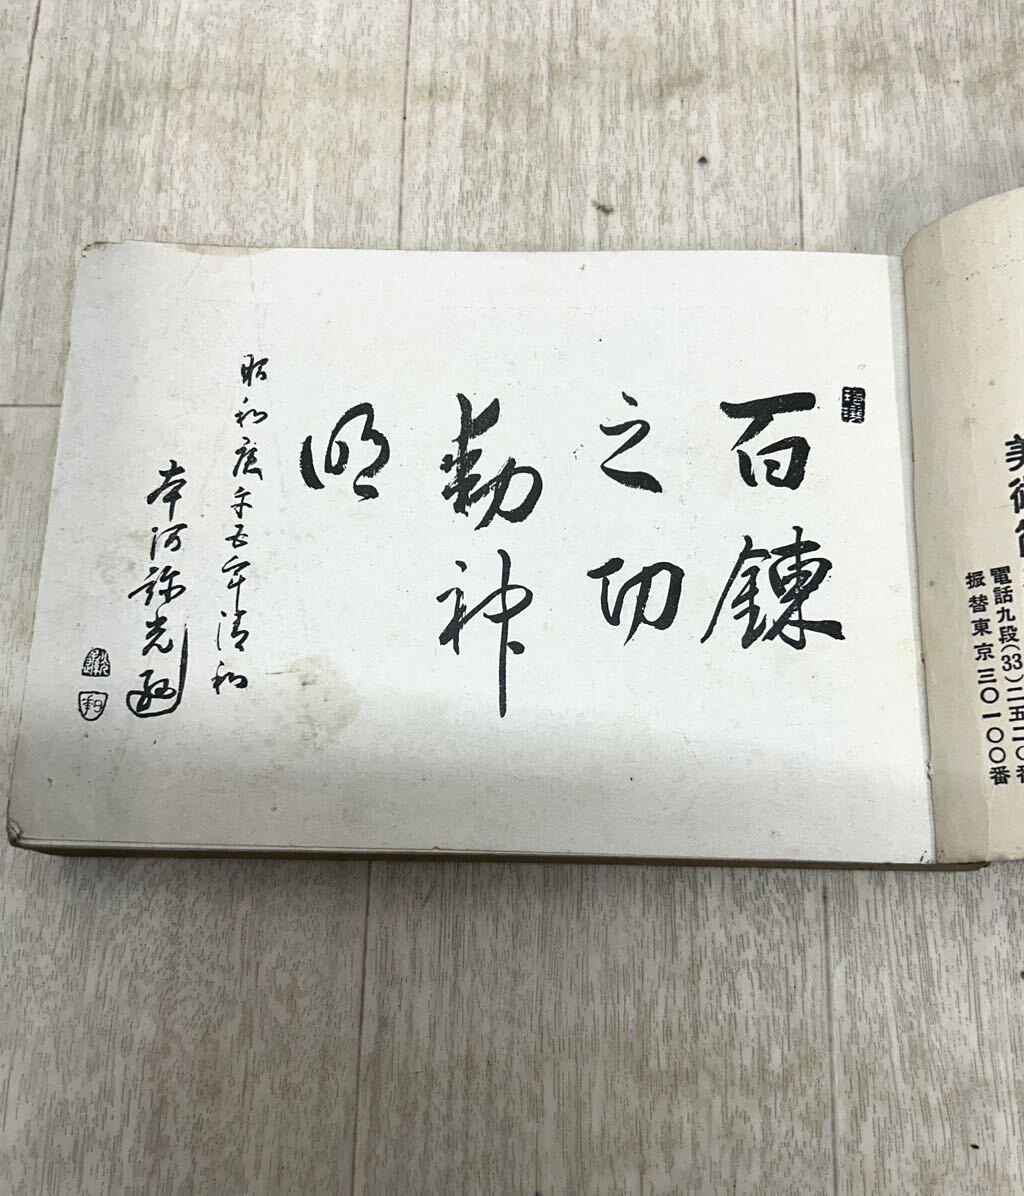 美術
電話九段(33)二五二〇番
振替東京三〇一〇〇番
百錬
之功
動神
明
昭和庚午五年清和
本阿弥光遜